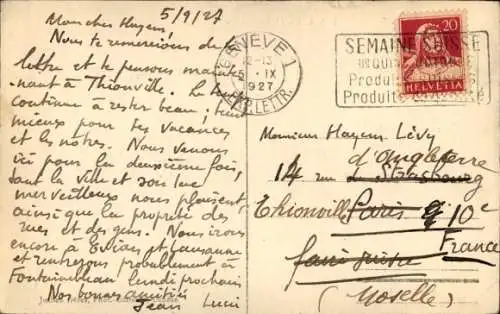 5/9/27
Mon cher Hayem,
Nous te remercions de ta
lettre et te pensons mainte-
nant à Thionville. Le temps
continue à rester beau; tant
mieux pour tes vacances
et les nôtres. Nous venons
ici pour la deuxième fois,
tant la ville et son lac
merveilleux nous plaisent,
ainsi que la propreté des
rues et des gens. Nous irons
encore à Evian et Lausanne
et rentrerons probablement à
Fontainebleau lundi prochain
Nos bonnes amitiés
Jean
GENÈVE 1
12-13
5. IX
1927
EXP. LETTR.
SEMAINE SUISSE
20
HELVETIA
Monsieur Hayem Lévy
d'Angleterre
14 rue de Strasbourg
Thionville Paris 10e
France
faire suivre
(Moselle)